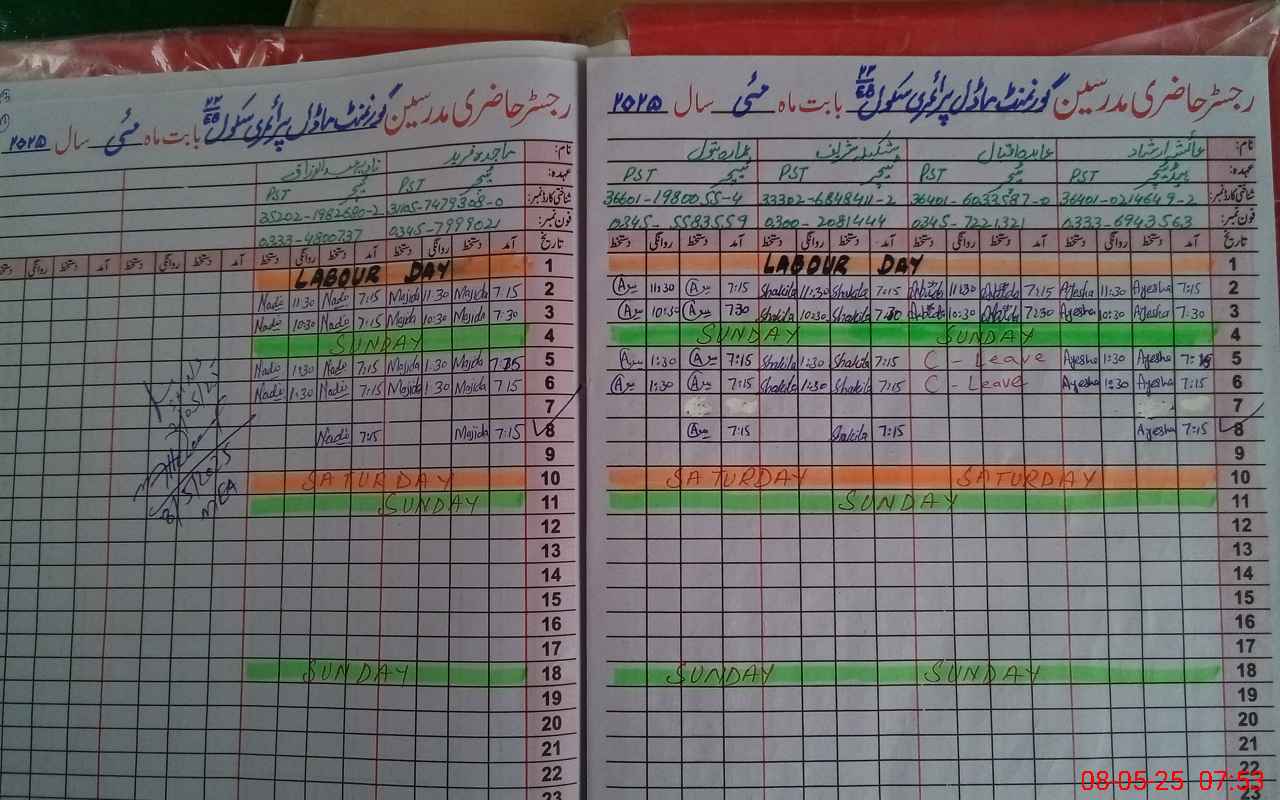 رجسٹر حاضری مدرسین گورنمنٹ ماڈل پرائمری سکول 23/EB بابت ماہ مئی سال ۲۰۲۵
نام: عائشہ ارشاد عابدہ اقبال شکیلہ شریف عمارہ بتول
عہدہ: ہیڈ ٹیچر ٹیچر PST ٹیچر PST ٹیچر PST
شناختی کارڈ نمبر: 36401-0214649-2 36401-6033587-0 33302-6848411-2 36601-1980055-4
فون نمبر: 0333-6943563 0345-7221321 0300-2081444 0345-5583559
تاریخ آمد دستخط روانگی دستخط آمد دستخط روانگی دستخط آمد دستخط روانگی دستخط آمد دستخط روانگی دستخط
1 LABOUR DAY
2 7:15 Ayesha 11:30 Ayesha 7:15 Abida 11:30 Abida 7:15 Shakila 11:30 Shakila 7:15 11:30
3 7:30 Ayesha 10:30 Ayesha 7:30 Abida 10:30 Abida 7:30 Shakila 10:30 Shakila 7:30 10:30
4 SUNDAY SUNDAY
5 7:15 Ayesha 1:30 Ayesha C - Leave 7:15 Shakila 1:30 Shakila 7:15 1:30
6 7:15 Ayesha 1:30 Ayesha C - Leave 7:15 Shakila 1:30 Shakila 7:15 1:30
7
8 7:15 Ayesha 7:15 Shakila 7:15
9
10 SATURDAY SATURDAY
11 SUNDAY
12
13
14
15
16
17
18 SUNDAY SUNDAY
19
20
21
22
23
رجسٹر حاضری مدرسین گورنمنٹ ماڈل پرائمری سکول 23/EB بابت ماہ مئی سال ۲۰۲۵
نام: ماجدہ فرید نادیہ عبدالرزاق
عہدہ: ٹیچر PST ٹیچر PST
شناختی کارڈ نمبر: 31105-7479308-0 35202-1982680-2
فون نمبر: 0345-7999021 0333-4800737
تاریخ آمد دستخط روانگی دستخط آمد دستخط روانگی دستخط آمد دستخط روانگی دستخط آمد دستخط روانگی دستخط
1 LABOUR DAY
2 7:15 Majida 11:30 Majida 7:15 Nadia 11:30 Nadia
3 7:30 Majida 10:30 Majida 7:15 Nadia 10:30 Nadia
4 SUNDAY
5 7:15 Majida 1:30 Majida 7:15 Nadia 1:30 Nadia
6 7:15 Majida 1:30 Majida 7:15 Nadia 1:30 Nadia
7
8 7:15 Majida 7:15 Nadia
9
10 SATURDAY
11 SUNDAY
12
13
14
15
16
17
18 SUNDAY
19
20
21
22
23
8/5/2025
MEA
08-05-25 07:53